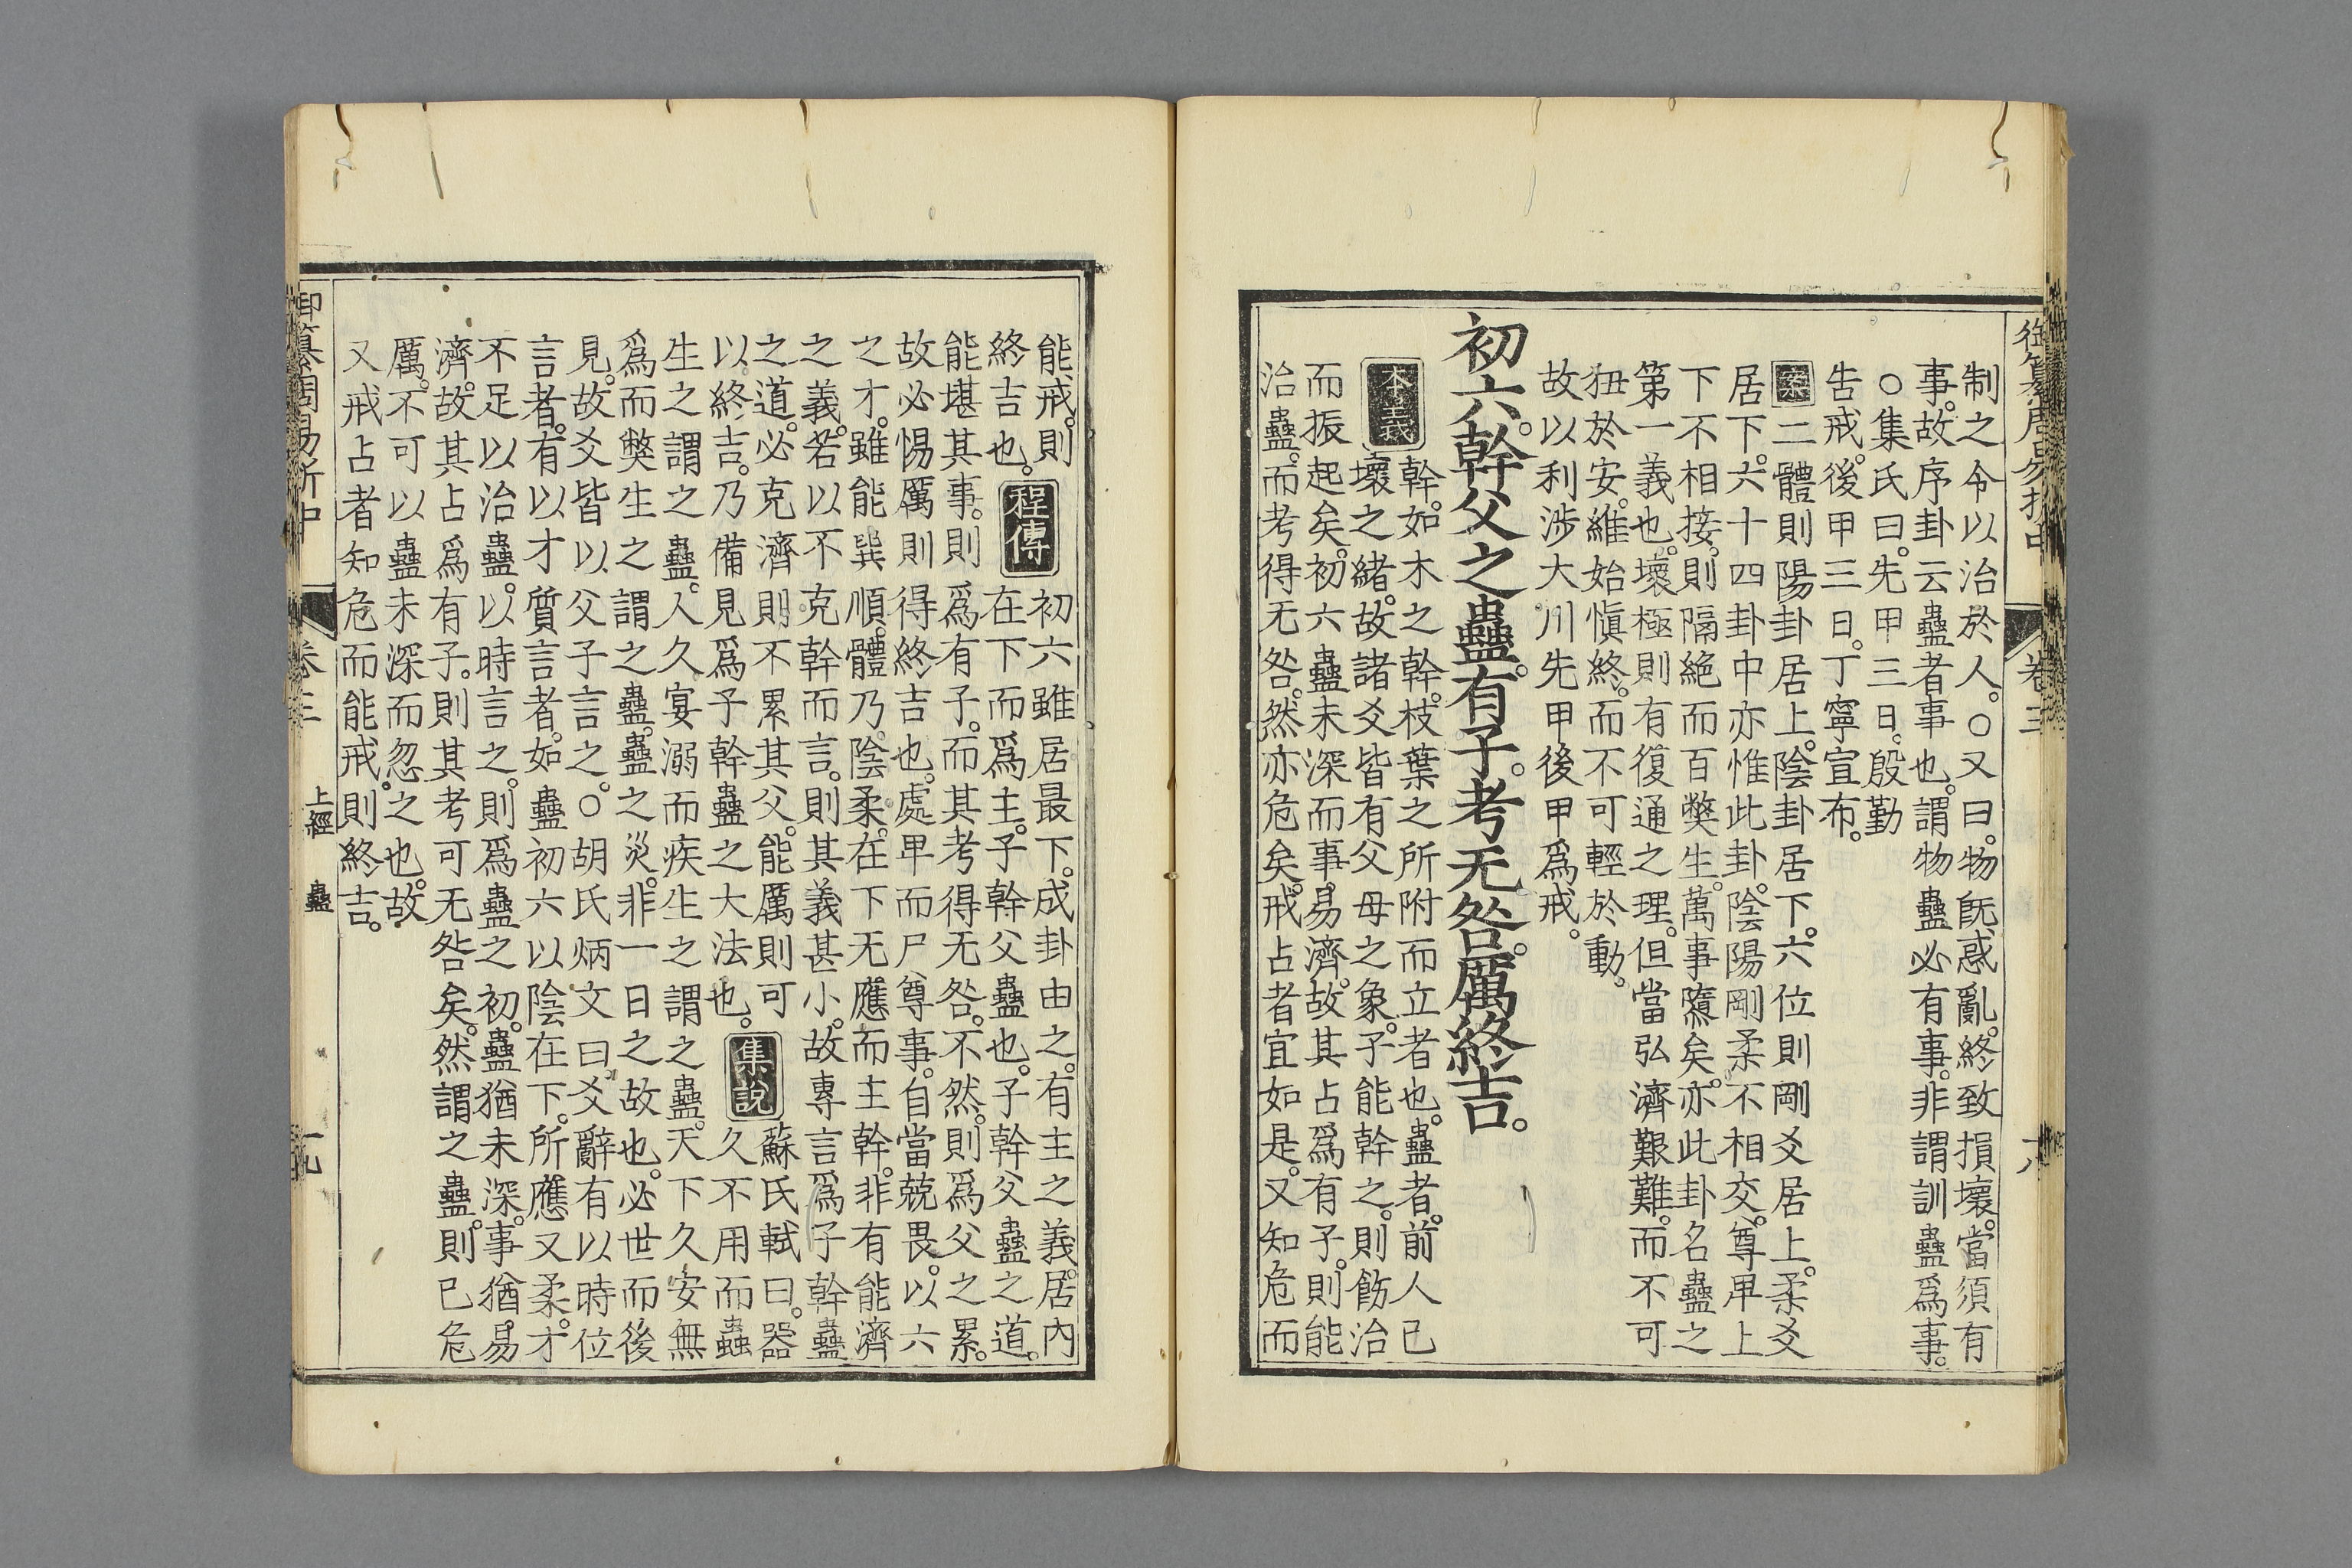 御纂周易折中 卷三 十八
制之令以治於人。○又曰。物旣惑亂。終致損壞。當須有
事。故序卦云蠱者事也。謂物蠱必有事。非謂訓蠱爲事。
○集氏曰。先甲三日。殷勤
告戒。後甲三日。丁寧宣布。
案二體則陽卦居上。陰卦居下。六位則剛爻居上。柔爻
居下。六十四卦中亦惟此卦。陰陽剛柔不相交。尊卑上
下不相接。則隔絶而百弊生。萬事隳矣。亦此卦名蠱之
第一義也。壞極則有復通之理。但當弘濟艱難。而不可
狃於安。維始愼終。而不可輕於動。
故以利涉大川先甲後甲爲戒。
初六。幹父之蠱。有子。考无咎。厲終吉。
本義
幹。如木之幹。枝葉之所附而立者也。蠱者。前人已
壞之緒。故諸爻皆有父母之象。子能幹之。則飭治
而振起矣。初六蠱未深而事易濟。故其占爲有子。則能
治蠱。而考得无咎。然亦危矣。戒占者宜如是。又知危而
能戒。則
終吉也。
程傳
初六雖居最下。成卦由之。有主之義。居內
在下而爲主。子幹父蠱也。子幹父蠱之道。
能堪其事。則爲有子。而其考得无咎。不然。則爲父之累。
故必惕厲則得終吉也。處卑而尸尊事。自當兢畏。以六
之才。雖能巽順。體乃陰柔。在下无應而主幹。非有能濟
之義。若以不克幹而言。則其義甚小。故專言爲子幹蠱
之道。必克濟則不累其父。能厲則可
以終吉。乃備見爲子幹蠱之大法也。
集說
蘇氏軾曰。器
久不用而蟲
生之謂之蠱。人久宴溺而疾生之謂之蠱。天下久安無
爲而弊生之謂之蠱。蠱之災。非一日之故也。必世而後
見。故爻皆以父子言之。○胡氏炳文曰爻辭有以時位
言者。有以才質言者。如蠱初六以陰在下。所應又柔。才
不足以治蠱。以時言之。則爲蠱之初。蠱猶未深。事猶易
濟。故其占爲有子。則其考可无咎矣。然謂之蠱。則已危
厲。不可以蠱未深而忽之也。故
又戒占者知危而能戒。則終吉。
御纂周易折中 卷三 上經 蠱 十九